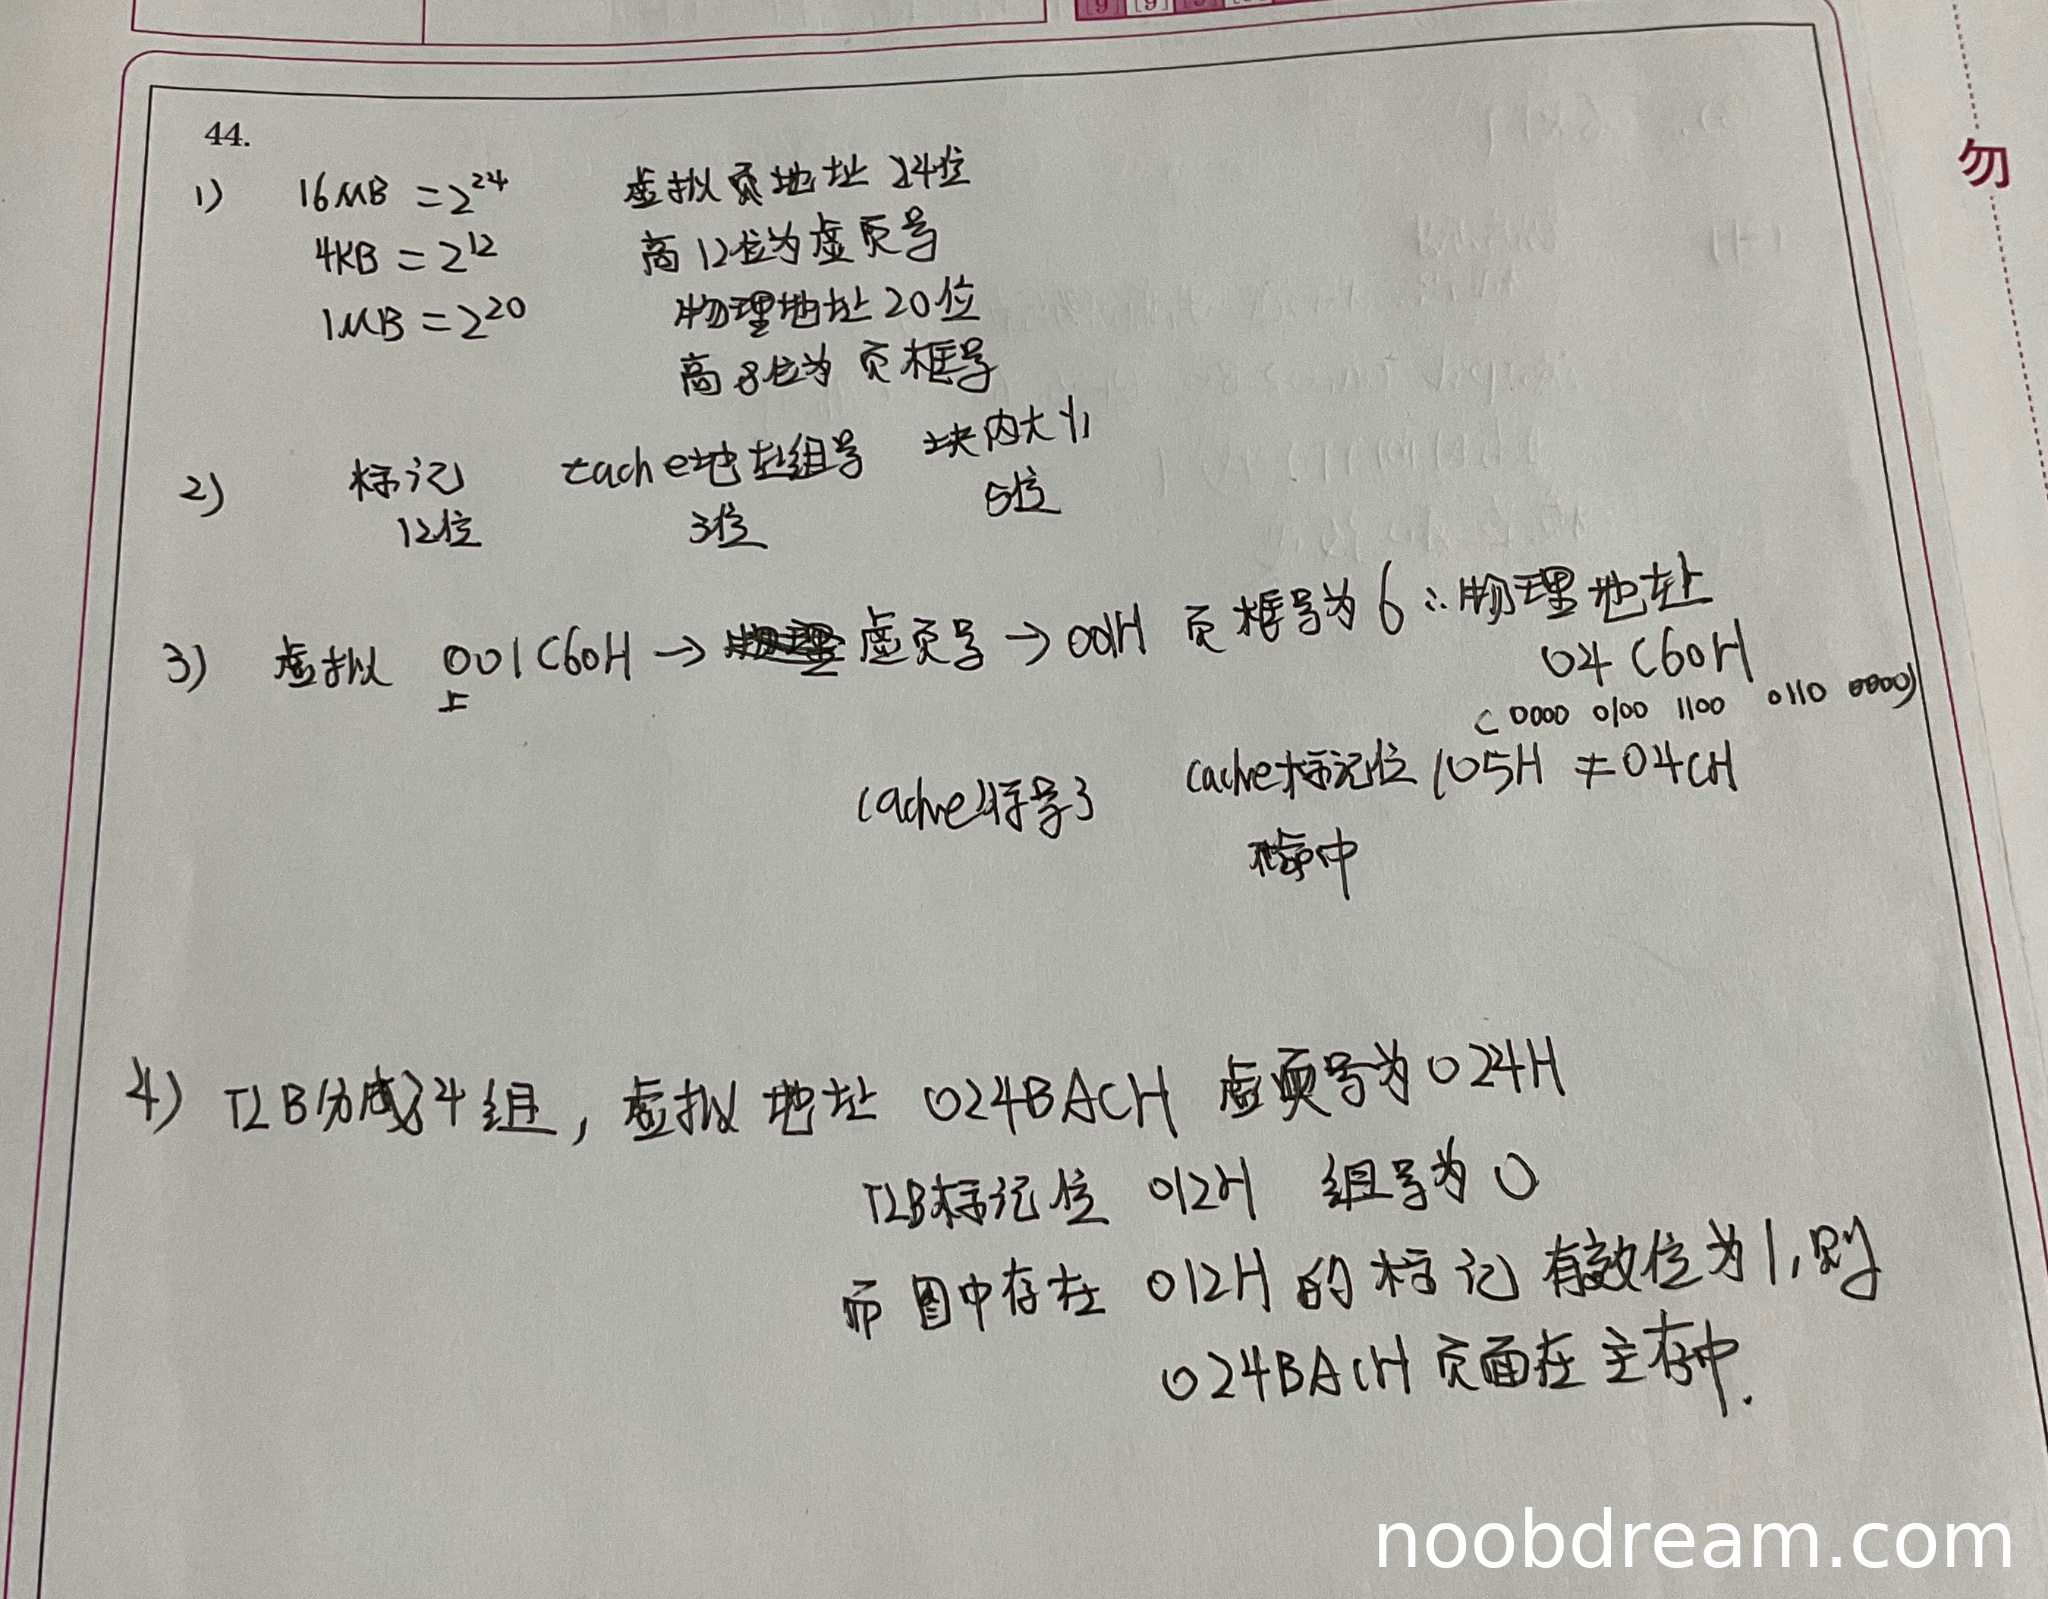 44.
1) 16MB = 2^24 虚拟页地址 24位
4KB = 2^12 高12位为虚页号
1MB = 2^20 物理地址20位
高8位为页框号
2) 标记 cache地址组号 块内大小
12位 3位 5位
3) 虚拟 001C60H → 虚页号 → 001H 页框号为6 ∴物理地址
04C60H
(0000 0100 1100 0110 0000)
cache行号3 cache标记位 105H ≠ 04CH
中
4) TLB分成4组, 虚拟地址 024BACH 虚页号为024H
TLB标记位 012H 组号为0
而图中存在 012H的标记 有效位为1,则
024BACH页面在主存中.
勿
noobdream.com